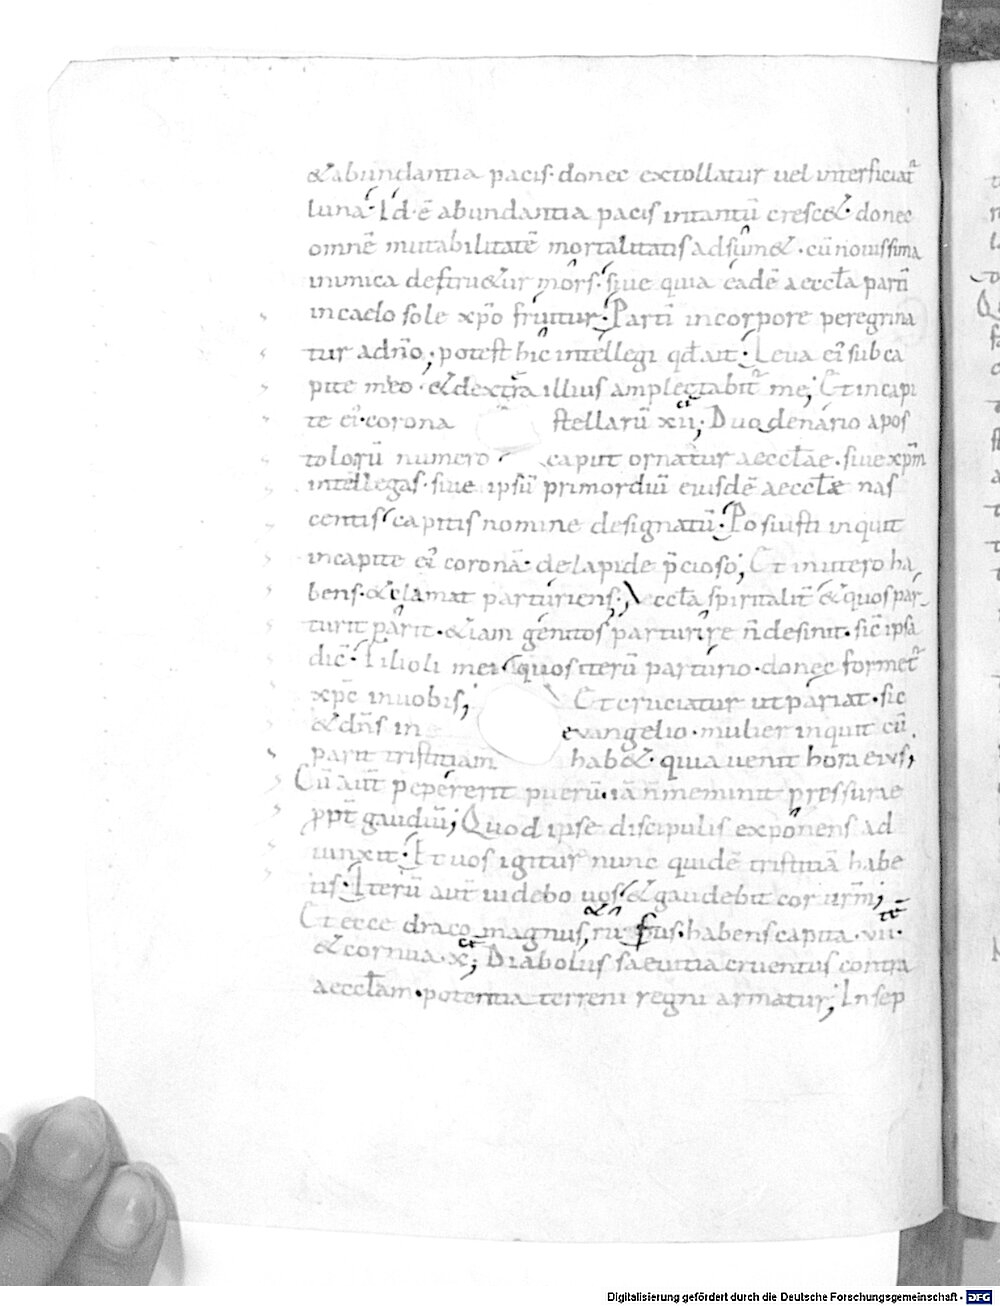 & abundantia pacis· donec extollatur uel interficiat᷑
luna·; Id·ē abundantia pacis intantū cresc&· donec
omnē mutabilitatē mortalitatis adsūm&· cū nouissima
inimica destru&ur mors· siue quia eadē aeccła partī
in caelo sole xp̄o fruitur·; Partī in corpore peregrina
tur a dn̄o; potest hic intellegi qd̄ ait·; Leua ei᷒ sub ca
pite meo· & dextera illius amplectabit᷑ me; Et in capi
te ei᷒ corona stellarū xii; Duodenario apos
tolorū numero caput ornatur aeccłae· siue xp̄m
intellegas· siue ipsū primordiū eiusdē aeccłæ nas
centis capitis nomine designatū·; Posuisti inquit
in capite ei᷒ coronā· de lapide p̄cioso; Et in utero ha
bens· & clamat parturiens·; Aeccła spiritalit̄ & quos par
turit parit· & iam genitos parturire n̄ desinit· sic̄ ipsa
dic̄· Filioli mei quos iterū parturio· donec formet᷑
xp̄c in uobis; Et cruciatur ut pariat· sic
& dn̄s in evangelio· mulier inquit cū
parit tristitiam hab&· quia uenit hora eius;
Cū aut̄ pepererit puerū· iā n̄ meminit pressurae
ppt̄ gaudiū; Quod ipse discipulis exponens ad
iunxit·; Et uos igitur nunc quidē tristitiā habe
tis·; Iterū aut̄ uidebo uos· & gaudebit cor ur̄m;
Et ecce draco magnus, rufus· habens capita· vii·
& cornua· x; Diabolus saeuitia cruentus contra
aeccłam· potentia terreni regni armatur; In sep
Digitalisierung gefördert durch die Deutsche Forschungsgemeinschaft - DFG